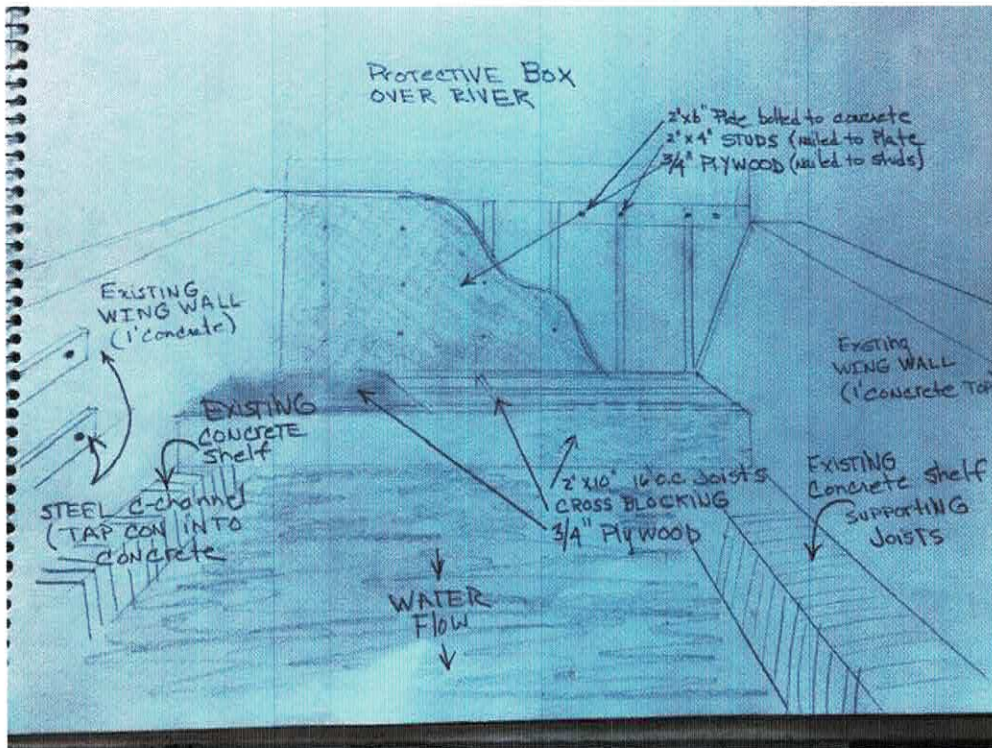 PROTECTIVE BOX
OVER RIVER
2"x6" Plate bolted to concrete
2"x4" STUDS (nailed to Plate
3/4" PLYWOOD (nailed to studs)
EXISTING
WING WALL
(1' Concrete)
Existing
WING WALL
(1' Concrete TOP
EXISTING
CONCRETE
Shelf
STEEL C-channel
(TAP CON INTO
CONCRETE
2"x10" 16" o.c. Joists
CROSS BLOCKING
3/4" Plywood
EXISTING
Concrete Shelf
SUPPORTING
JOISTS
WATER
Flow